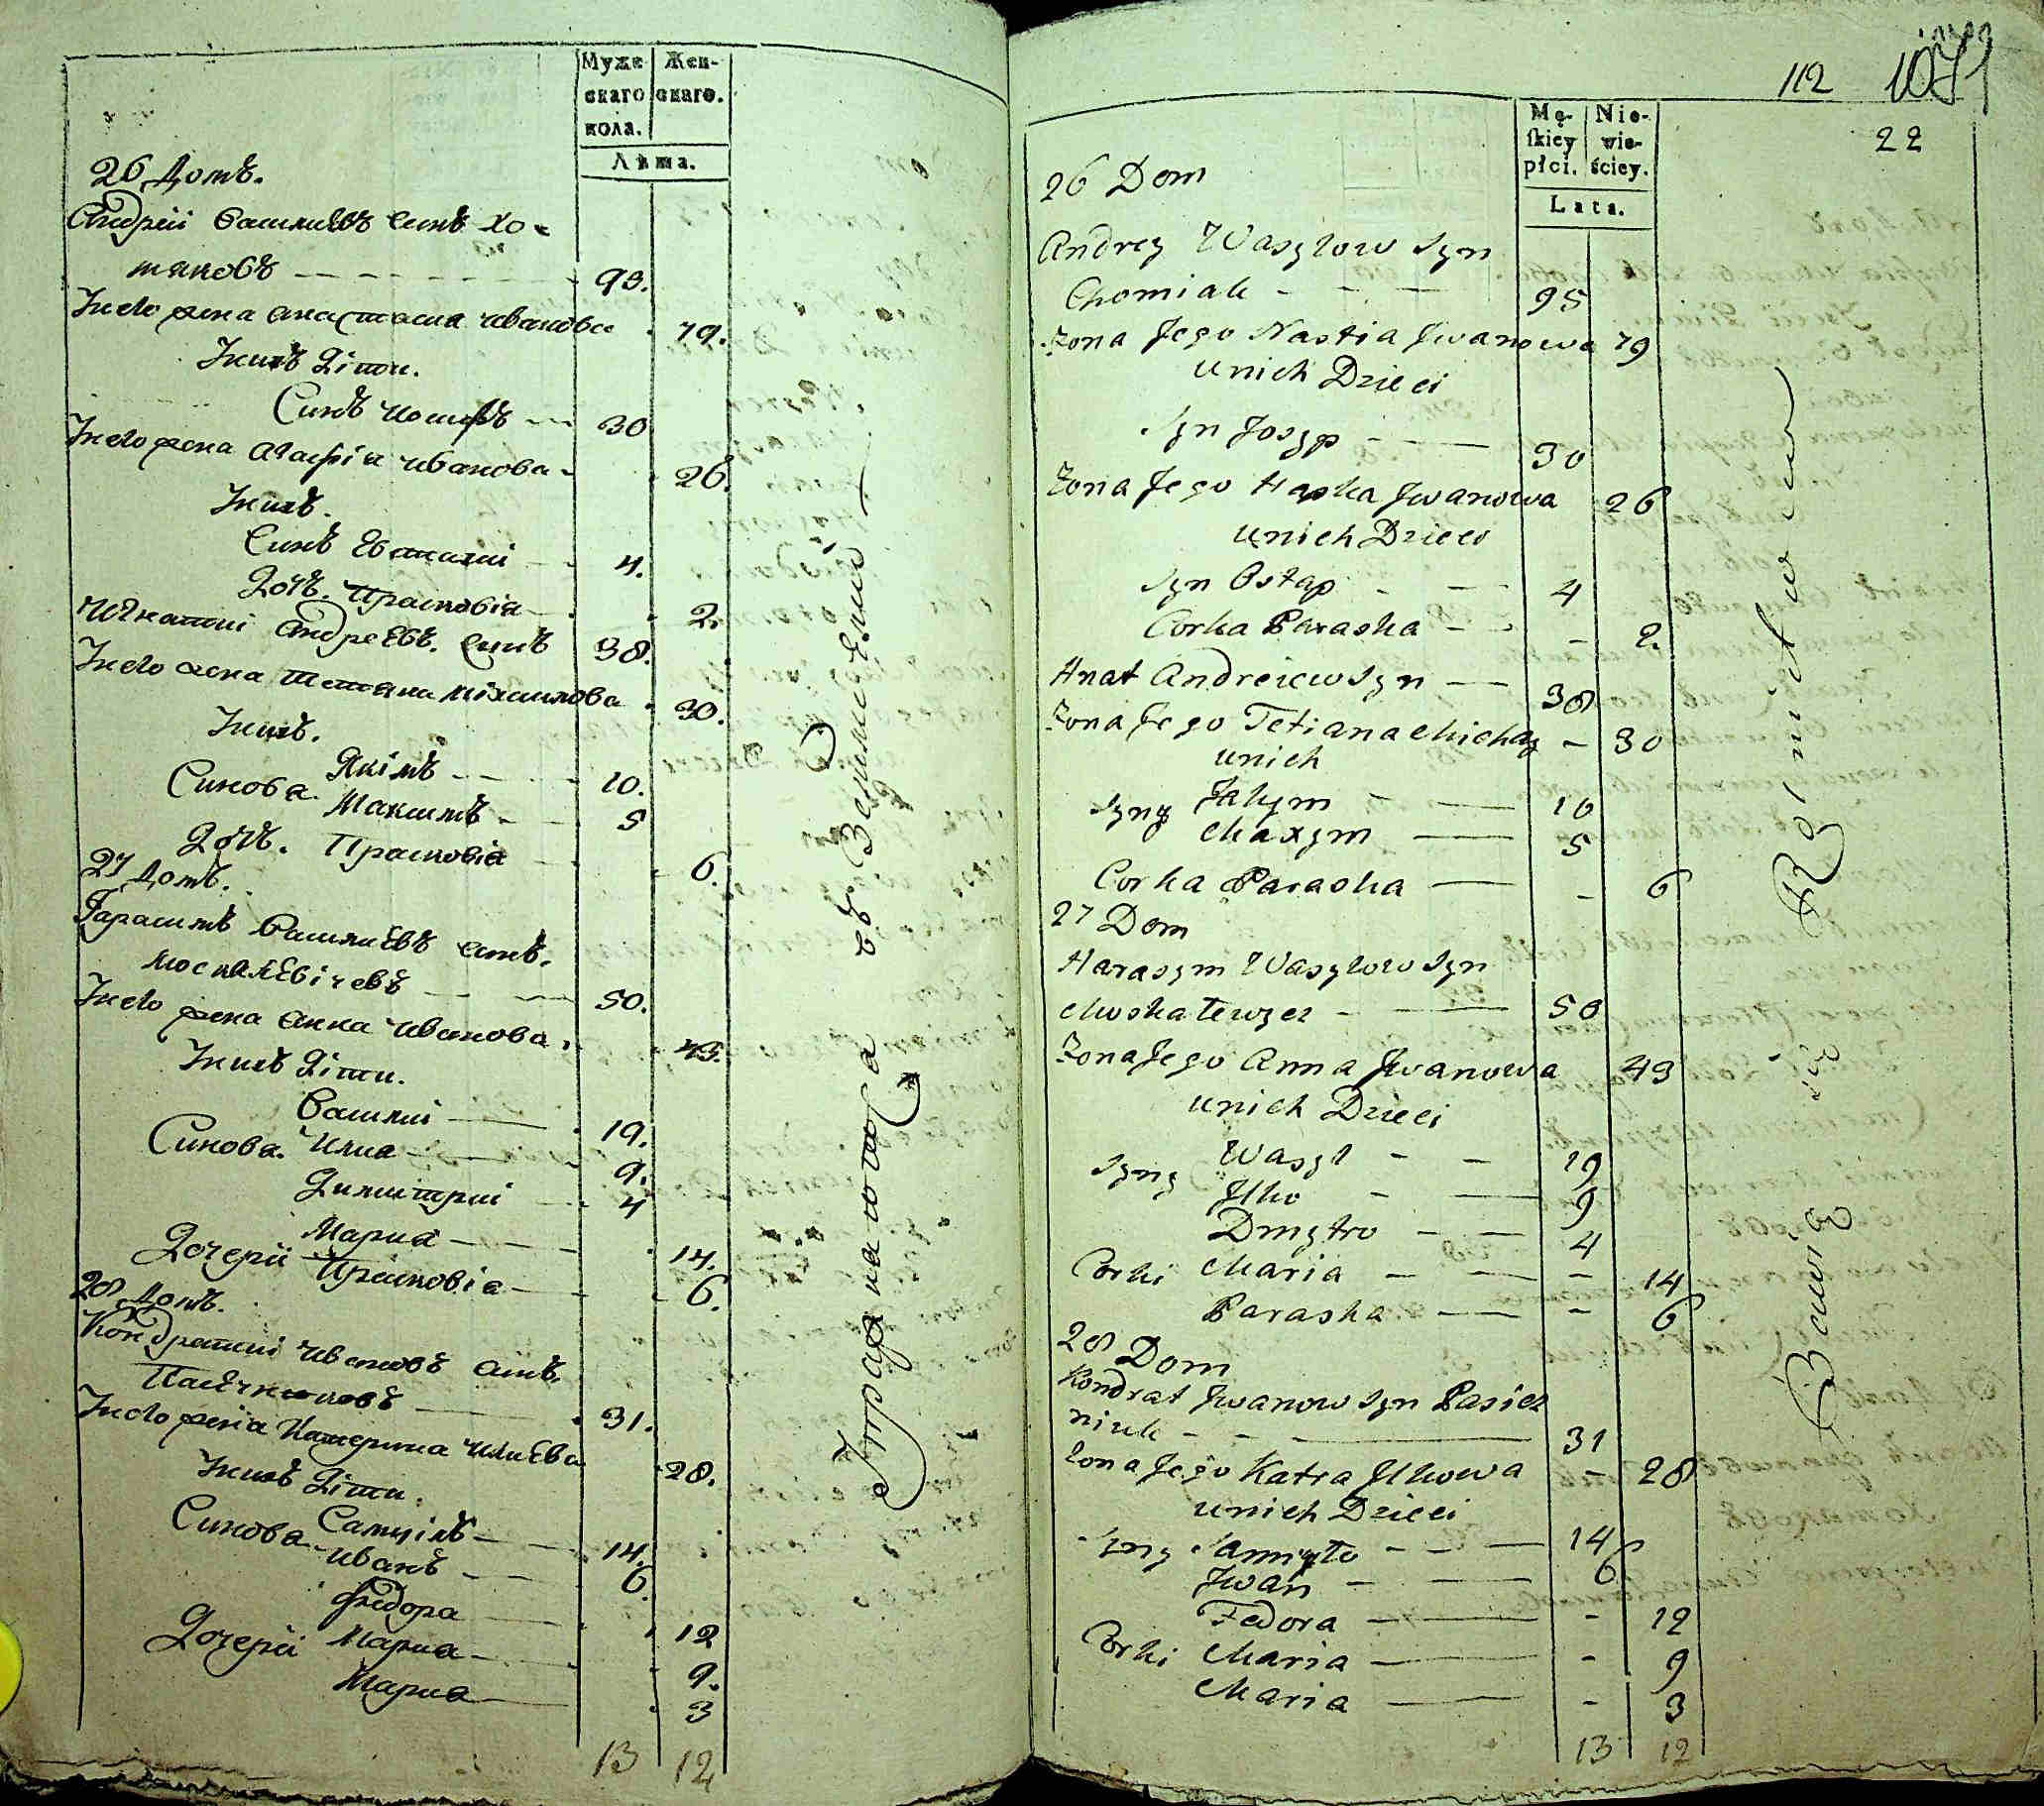 Муже
скаго
пола.
Жен-
скаго.
Лѣта.
26 Домъ.
Андрей Василиевъ синъ Хо-
мяковъ 95.
Ж его жена Анастасиа Ивановa 79.
У нихъ Діти.
Синъ Иосифъ 30
У него жена Агафіа Иванова 26.
У нихъ.
Синъ Евстахий 4.
Дочь. Прасковіа 2.
Игнатий Андреевъ. Синъ 38.
У него жена Тетяна Міхаилова 30.
У нихъ.
Якімъ 10.
Синова
Максимъ 5
Дочь. Прасковіа 6.
27 Домъ.
Гарасимъ Василиевъ синъ.
Москалевічевъ 50.
У него жена Анна Иванова. 43.
У нихъ Діти.
Василий 19.
Синова. Илиа 9.
Димитрий 4
Мариа 14.
Дочерии
Прасковіа 6.
28 Домъ.
Кондратий Ивановъ синъ.
Пасечниковъ 31.
У него жена Катерина Илиева 28.
У нихъ Діти.
Синова Самуілъ 14.
Иванъ 6.
Федора 12
Дочерии Мариа 9.
Мариа 3
13 12
112 1071
22
Mę-
skiey
płci.
Nie-
wie-
ściey.
Lata.
26 Dom
Andrey Wasylow Syn
Chomiak 95
Zona Jego Nastia Jwanowa 79
u nich Dzieci
Syn Josyp 30
Zona Jego Hapka Jwanowa 26
u nich Dzieci
Syn Ostap 4
Corka Paraska 2.
Hnat Andreiew Syn 38
Zona Jego Tetiana Michay 30
u nich
Syny Jakym 10
Maxym 5
Corka Paraska 6
27 Dom
Harasym Wasylow Syn
Moskalewycz 50
Zona Jego Anna Jwanowa 43
u nich Dzieci
Syny Wasyl 19
Jlko 9
Dmytro 4
Corki Maria 14
Paraska 6
28 Dom
Kondrat Jwanow Syn Pasicz
niuk 31
Zona Jego Katra Jlkowa 28
u nich Dzieci
Syny Samyło 14
Jwan 6
Fedora 12
Corki Maria 9
Maria 3
13 12